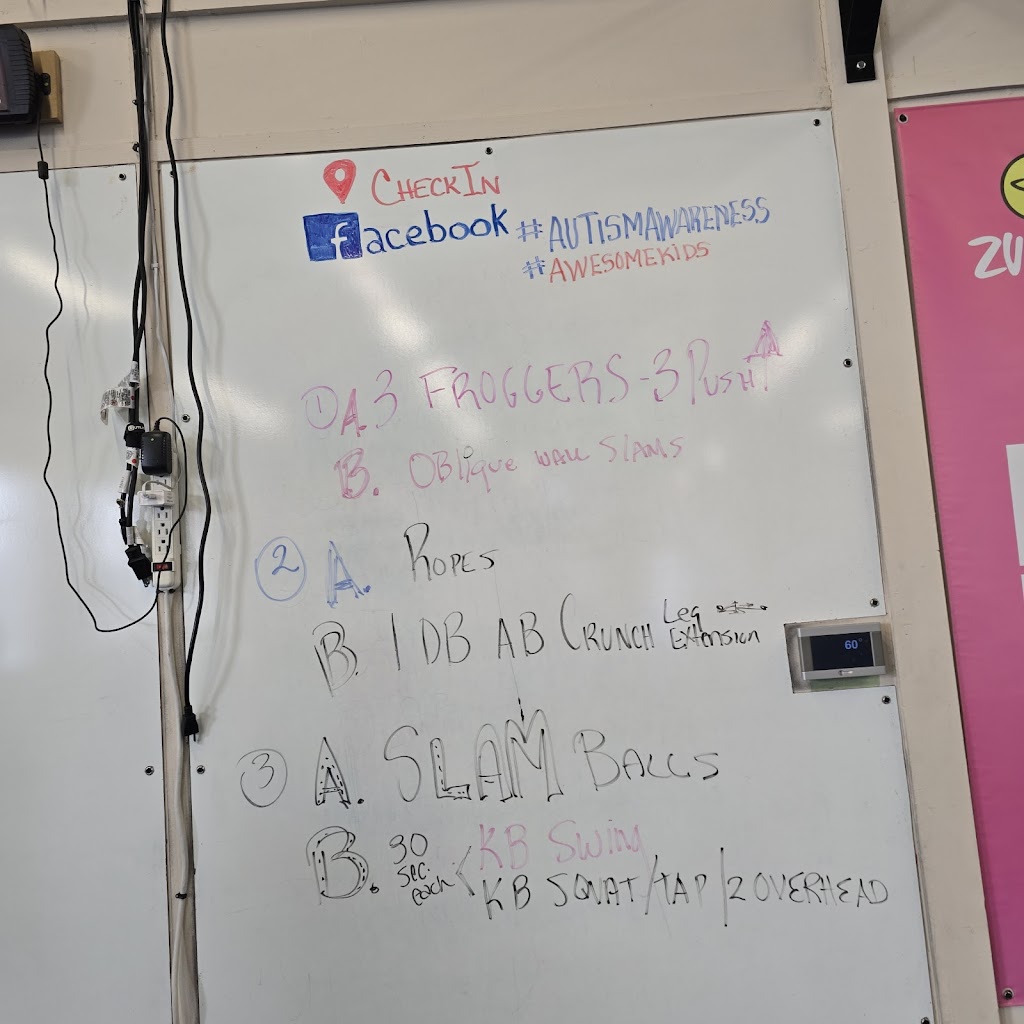 CHECK IN
facebook #AUTISMAWARENESS
#AWESOMEKIDS
① A. 3 FROGGERS - 3 PUSH↑
B. OBlique WALL SLAMS
② A. ROPES
B. 1 DB AB CRUNCH Leg
EXTension
③ A. SLAM BALLS
B. 30 Sec. each < KB Swing
KB SQUAT/TAP/2 OVERHEAD
60°
ZU